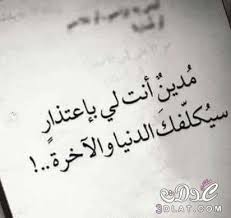 مُدينٌ أنت لي بإعتذارٍ
سيُكلّفكَ الدنيا والآخرة..!
3DLAT.COM